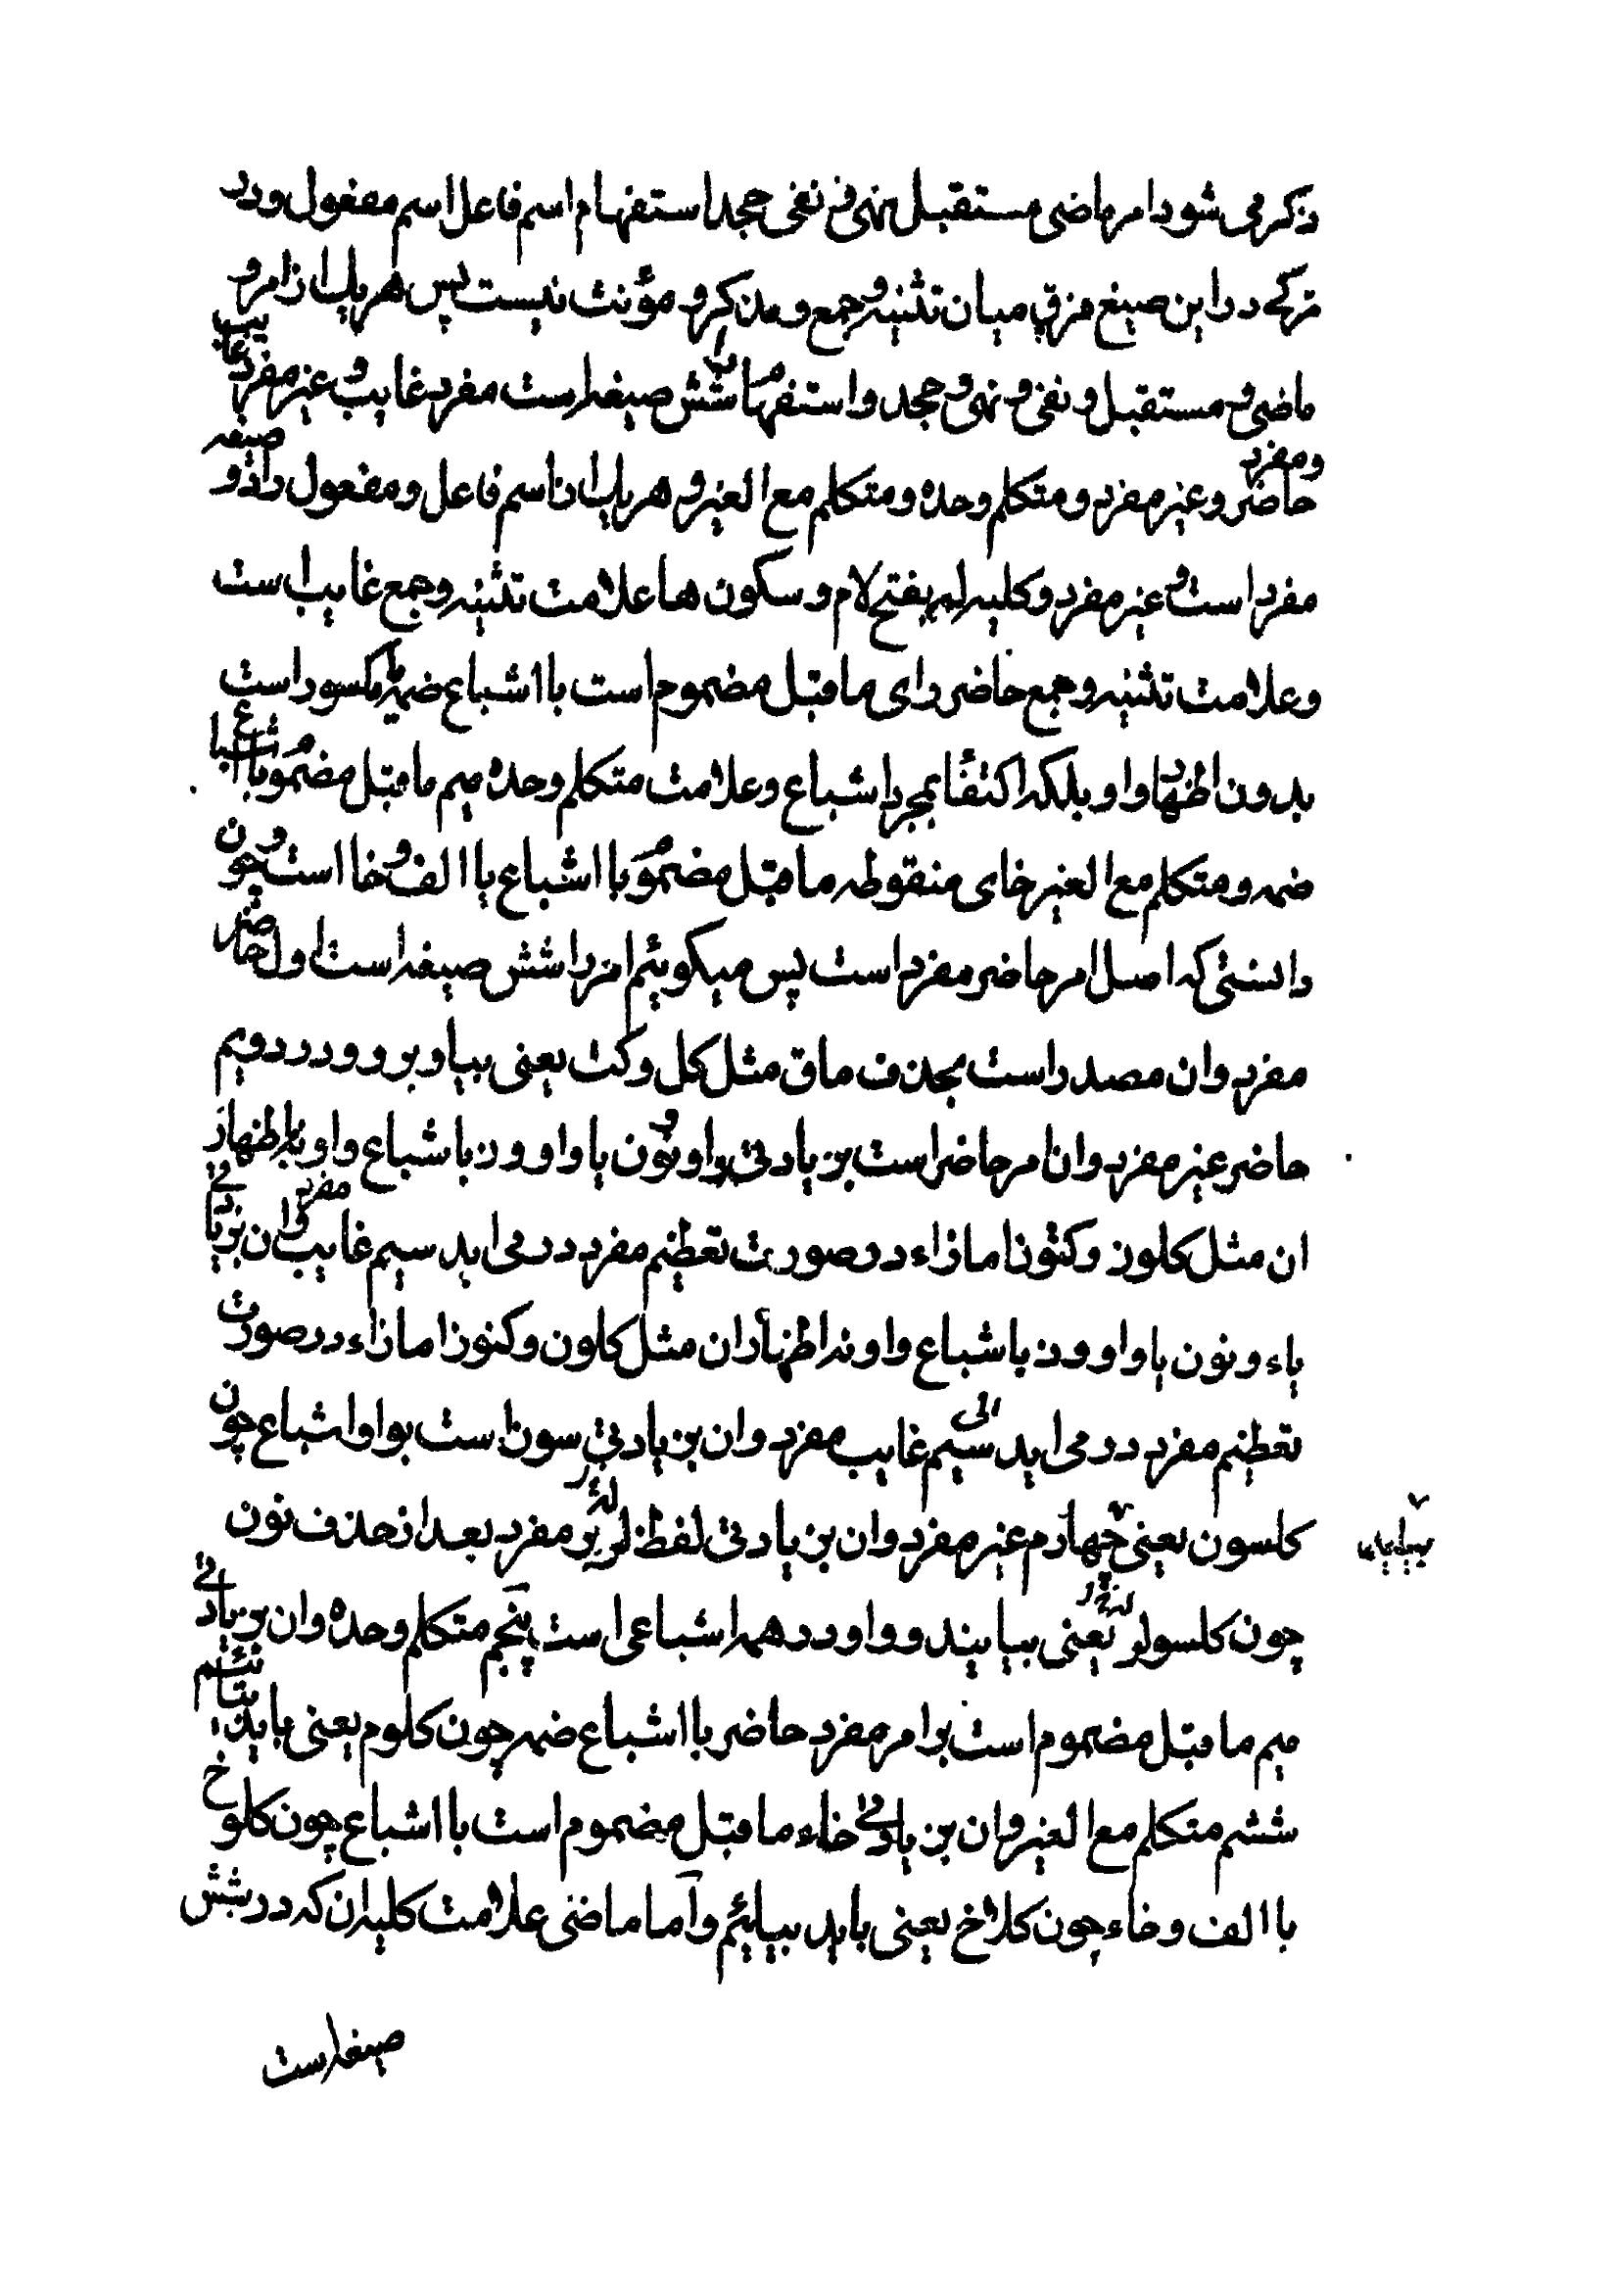 ذکر می شود امر ماضی مستقبل نهی نفی جحد استفهام اسم فاعل اسم مفعول و در
ترکی در این صیغ فرقی میان تثنیه و جمع و مذکر و مؤنث نیست پس هر یک از امر و
ماضی و مستقبل و نفی و نهی و جحد و استفهام را شش صیغه است مفرد غایب و غیر مفرد غایب
و مفرد حاضر و غیر مفرد و متکلم وحده و متکلم مع الغیر و هر یک از اسم فاعل و مفعول را دو صیغه
مفرد است و غیر مفرد و کلیه لر بفتح لام و سکون ها علامت تثنیه و جمع غایب است
و علامت تثنیه و جمع حاضر زای ماقبل مضموم است با اشباع ضمه یا مکسور است
بدون اظهار واو بلکه اکتفا بمجرد اشباع و علامت متکلم وحده میم ماقبل مضموم با اشباع
ضمه و متکلم مع الغیر خای منقوطه ماقبل مضموم با اشباع یا الف و خا است و چون
دانستی که اصل امر حاضر مفرد است پس میکوئیم امر را شش صیغه است اول حاضر
مفرد و ان مصدر است بحذف ماق مثل کل و کت یعنی بیا و برو و در دویم
حاضر غیر مفرد و ان امر حاضر است بزیادتی واو و نون یا واو و ز باشباع واو نه باظهار
ان مثل کلون و کتون اما زاء در صورت تعظیم مفرد در می اید سیم غایب مفرد و ان بزیادتی
یاء و نون یا واو و ز باشباع واو نه اظهار ان مثل کلون و کتون اما زاء در صورت
تعظیم مفرد در می اید الی سیم غایب مفرد و ان بزیادتی سون است بواو اشباع چون
کلسون یعنی بیاید چهارم غیر مفرد و ان بزیادتی لفظ لر بر مفرد بعد از حذف نون
چون کلسولر یعنی بیایند و واو در همه اشباعی است پنجم متکلم وحده و ان بزیادتی
میم ماقبل مضموم است بر امر مفرد حاضر با اشباع ضمه چون کلوم یعنی باید بیایم
ششم متکلم مع الغیر و ان بزیادتی خاء ماقبل مضموم است با اشباع چون کلوخ
با الف و خاء چون کلاخ یعنی باید بیائیم و اما ماضی علامت کلیه ان که در شش
صیغه است